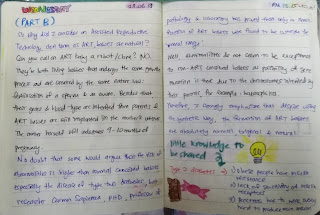 (PART B)
So why did I consider an Assisted Reproductive
Technology also term as ART babies as natural?
Can you call an ART baby a robot / clone? NO.
They're both living babies that undergo the same growth
process and are caused by the same nature law.
Besides that
their genes & blood type are inherited from parents &
ART babies are still implanted in the mother's uterus.
The mother herself will undergoes 9-10 months of
pregnancy.
No doubt that some would argue that the risk of
abnormalities is higher than normal conceived babies
especially the disease of type two diabetes,
researcher Carmen Sapienza, PHD, professor of
pathology & laboratory has proved that only a small
fraction of ART babies were found to be outside the
normal range.
ART abnormalities do not seem to be exceptional
to non-ART conceived babies as possibility of gene
mutation is that due to the chromosomes inherited by
their parents, for example, haemophilia.
Therefore, I strongly emphasise that despite using
the synthetic way, the formation of ART babies
are absolutely normal, original & natural.
little knowledge to
be shared
Type 2 diabetes:
1) Obese people have insulin
resistance
2) lack of sensitivity of insulin
receptors
3) pancreas has to work overly
hard to produce more insulin